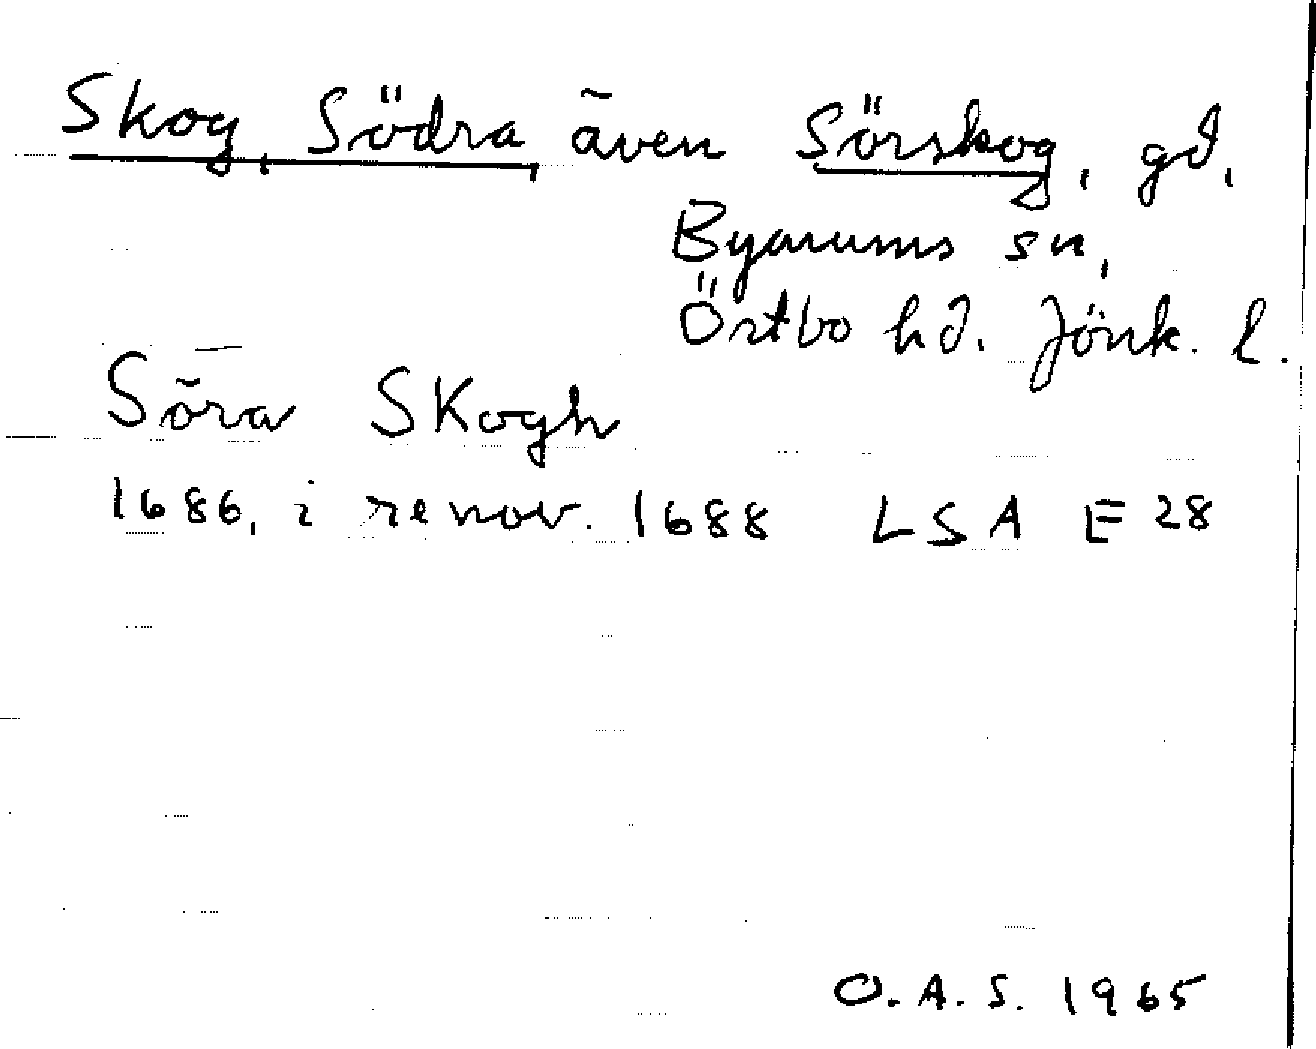 Skog, Södra, även Sörskog, gd,
Byarums sn,
Östbo hd. Jönk. l.
Söra SKogh
1686, i renov. 1688 LSA E 28
O.A.S. 1965